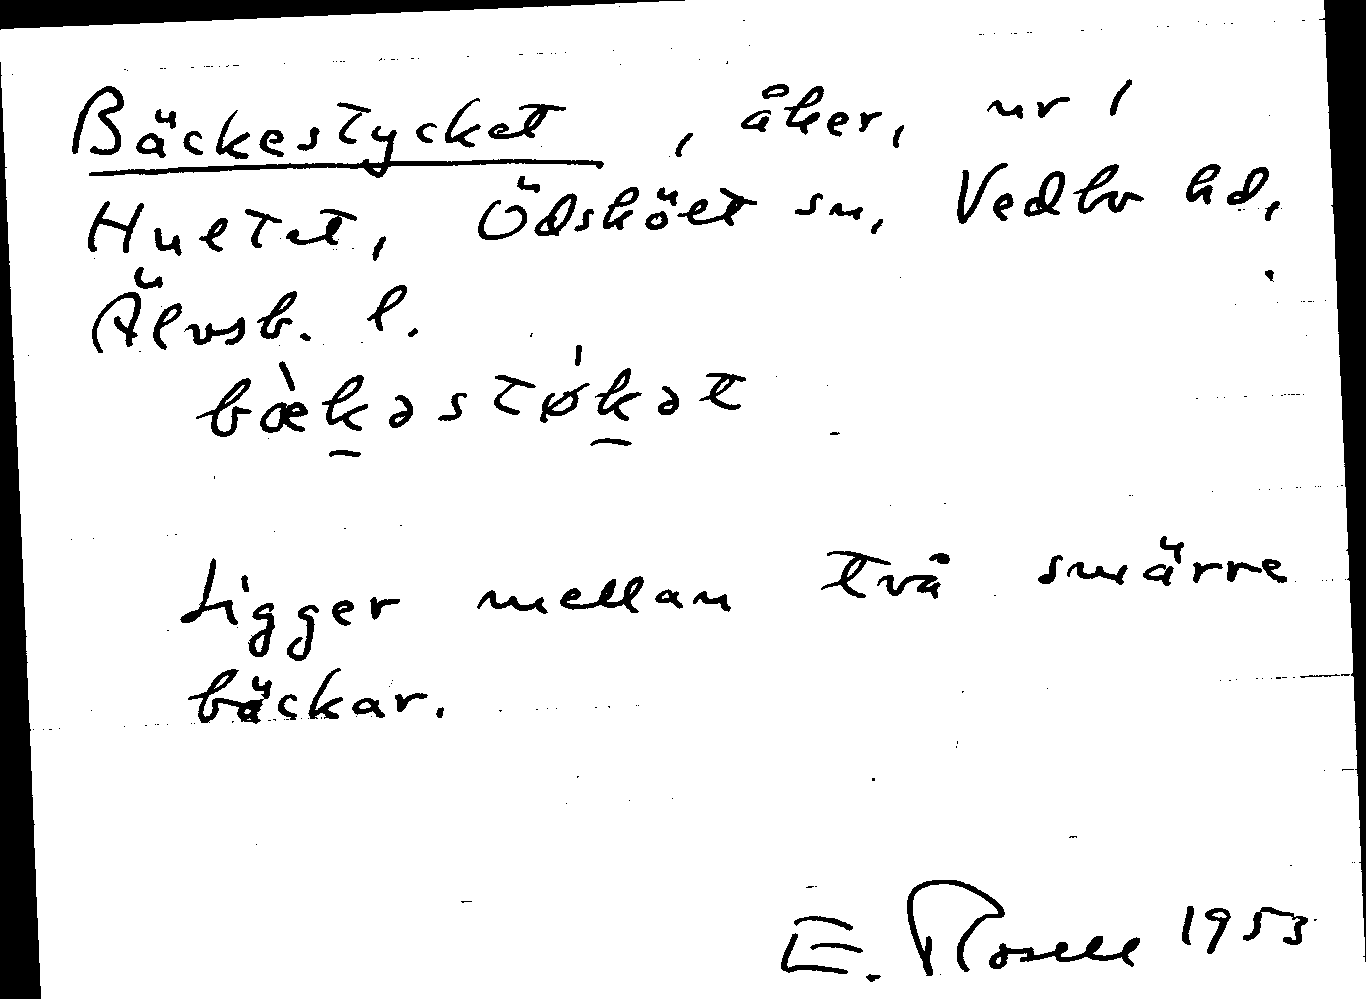 Bäckestycket, åker, nr 1
Hultet, Ödskölt sn, Vedbo hd,
Älvsb. l.
bæ̀k̠əstǿk̠ət
Ligger mellan två smärre
bäckar.
E. Rosell 1953